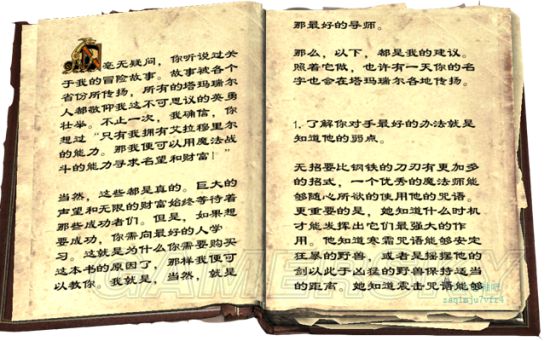 毫无疑问，你听说过关
于我的冒险故事。故事被各个
省份所传扬，所有的塔玛瑞尔
人都敬仰我这不可思议的英勇
壮举。不止一次，我确信，你
想过“只有我拥有艾拉穆里尔
的能力。那我便可以用魔法战
斗的能力寻求名望和财富！”
当然，这些都是真的。巨大的
声望和无限的财富始终等待着
那些成功者们。但是，如果想
要成功，你需向最好的人学
习。这就是为什么你需要购买
这本书的原因了，那样我便可
以教你。我就是，当然，就是
那最好的导师。
那么，以下，都是我的建议。
照着它做，也许有一天你的名
字也会在塔玛瑞尔各地传扬。
1. 了解你对手最好的办法就是
知道他的弱点。
无招要比钢铁的刀刃有更加多
的招式，一个优秀的魔法师能
够随心所欲的使用他的咒语。
更重要的是，她知道什么时机
才能发挥出它们最强大的作
用。他知道寒霜咒语能够安定
狂暴的野兽，或者是摇摆他的
剑以此于凶猛的野兽保持适当
的距离。她知道震击咒语能够
GAMERSKY
zaqimju7vfr4